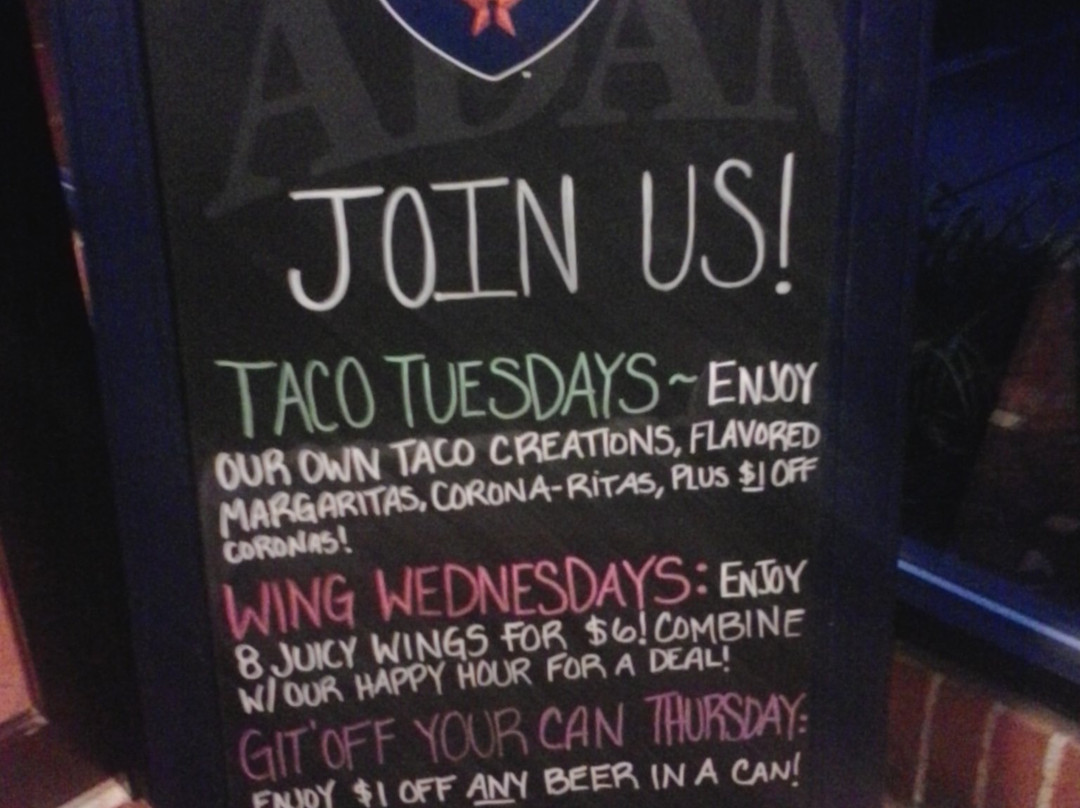 ADAM
JOIN US!
TACO TUESDAYS~ ENJOY
OUR OWN TACO CREATIONS, FLAVORED
MARGARITAS, CORONA-RITAS, PLUS $1 OFF
CORONAS!
WING WEDNESDAYS: ENJOY
8 JUICY WINGS FOR $6! COMBINE
W/ OUR HAPPY HOUR FOR A DEAL!
GIT' OFF YOUR CAN THURSDAY:
ENJOY $1 OFF ANY BEER IN A CAN!